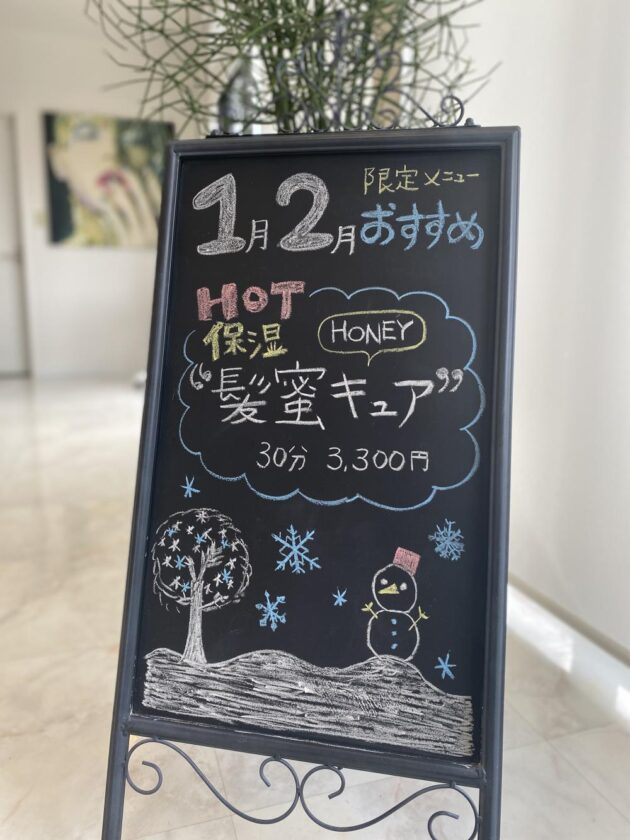 限定メニュー
1月2月おすすめ
HOT
保湿
HONEY
“髪蜜キュア”
30分 3,300円